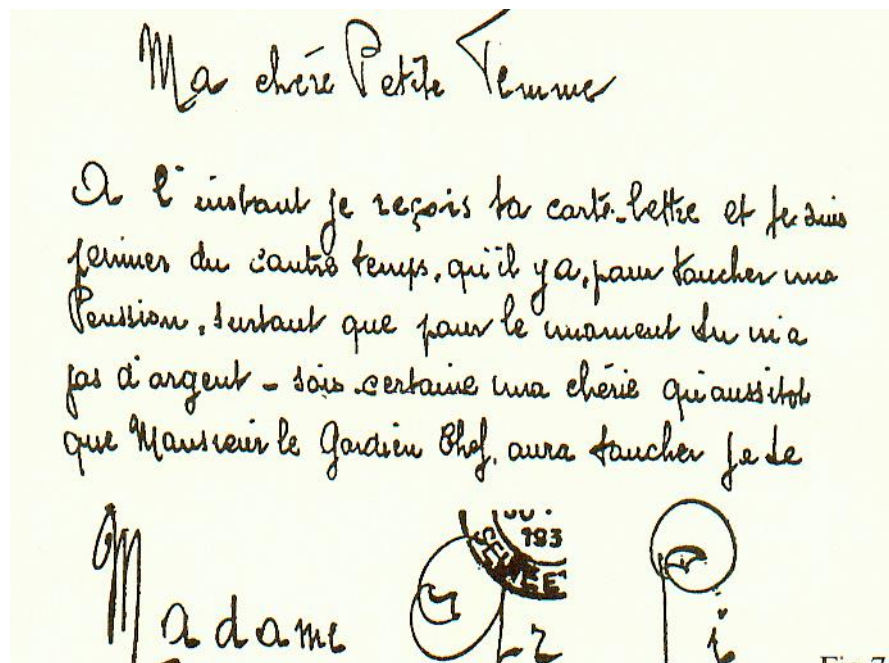 Ma chére Petite Femme
A l'instant je reçois ta carte-lettre et je suis
peiner du contre temps, qu'il y a, pour toucher ma
Penssion, surtout que pour le moment tu n'a
pas d'argent - sois certaine ma chérie qu'aussitot
que Monsieur le Gardien Chef, aura toucher je te
193
SEINE ET
Madame
Fig 7